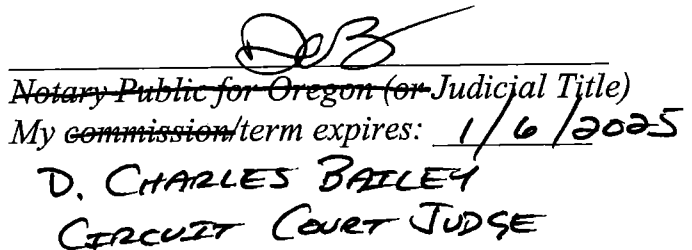 Notary Public for Oregon (or Judicial Title)
My commission/term expires: 1/6/2025
D. CHARLES BAILEY
CIRCUIT COURT JUDGE